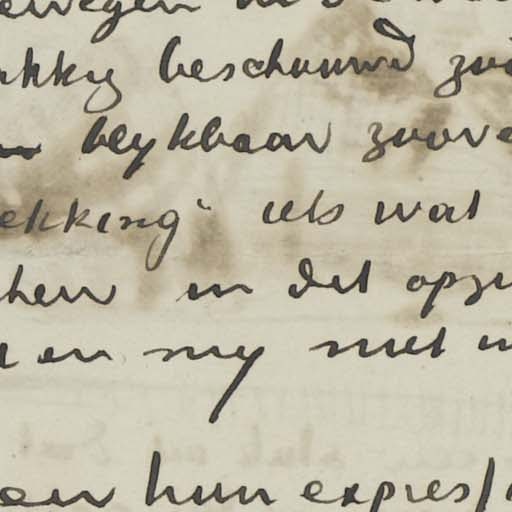 ewegen
ukkig beschouwd zoo
blijkbaar zoove
ekking" iets wat
hen in dit opzi
en my niet
en hun expres